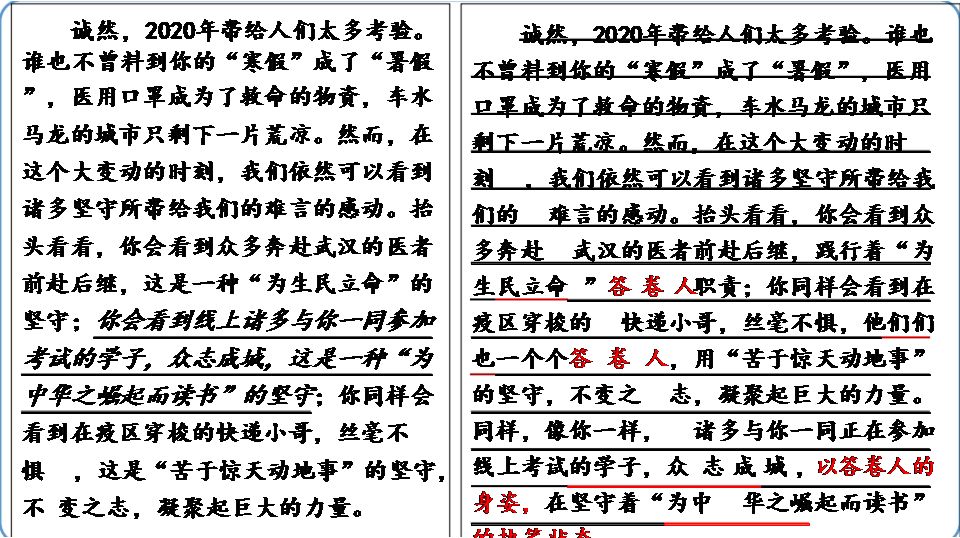 诚然，2020年带给人们太多考验。
谁也不曾料到你的“寒假”成了“暑假
”，医用口罩成为了救命的物资，车水
马龙的城市只剩下一片荒凉。然而，在
这个大变动的时刻，我们依然可以看到
诸多坚守所带给我们的难言的感动。抬
头看看，你会看到众多奔赴武汉的医者
前赴后继，这是一种“为生民立命”的
坚守；你会看到线上诸多与你一同参加
考试的学子，众志成城，这是一种“为
中华之崛起而读书”的坚守；你同样会
看到在疫区穿梭的快递小哥，丝毫不
惧 ，这是“苦于惊天动地事”的坚守，
不 变之志，凝聚起巨大的力量。
诚然，2020年带给人们太多考验。谁也
不曾料到你的“寒假”成了“暑假”，医用
口罩成为了救命的物资，车水马龙的城市只
剩下一片荒凉。然而，在这个大变动的时
刻 ，我们依然可以看到诸多坚守所带给我
们的 难言的感动。抬头看看，你会看到众
多奔赴 武汉的医者前赴后继，践行着“为
生民立命 ”答 卷 人职责；你同样会看到在
疫区穿梭的 快递小哥，丝毫不惧，他们们
也一个个答 卷 人，用“苦于惊天动地事”
的坚守，不变之 志，凝聚起巨大的力量。
同样，像你一样， 诸多与你一同正在参加
线上考试的学子，众 志 成 城 ，以答卷人的
身姿，在坚守着“为中 华之崛起而读书”